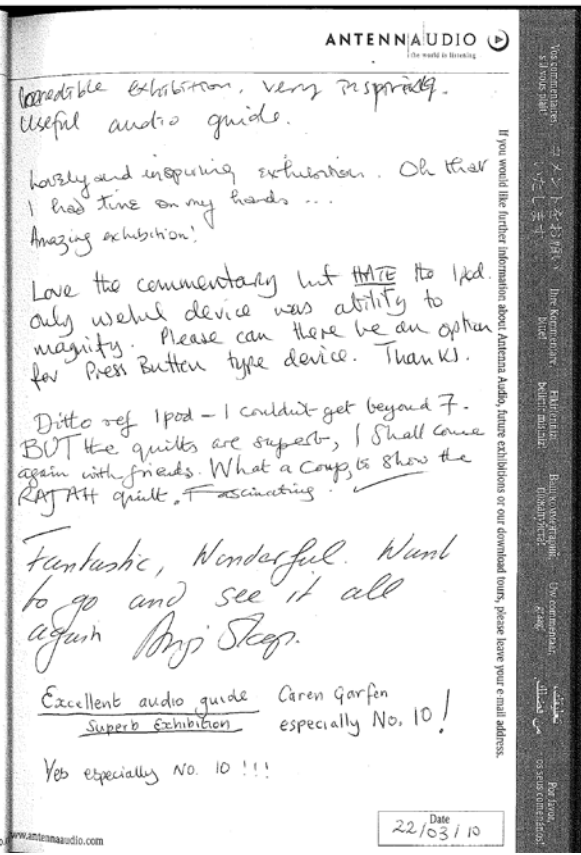 ANTENNAAUDIO
the world is listening
Incredible exhibition, very inspiring.
Useful audio guide.
Lovely and inspiring exhibition. Oh that
I had time on my hands ...
Amazing exhibition!
Love the commentary but HATE the Ipod.
only useful device was ability to
magnify. Please can there be an option
for Press Button type device. Thanks.
Ditto ref Ipod – I couldn't get beyond 7.
BUT the quilts are superb, I shall come
again with friends. What a Coup, to show the
RAJAH quilt. Fascinating.
Fantastic, Wonderful. Want
to go and see it all
again
Excellent audio guide
Superb Exhibition
Caren Garfen
especially No. 10!
Yes especially No. 10 !!!
Date
22/03/10
www.antennaaudio.com
If you would like further information about Antenna Audio, future exhibitions or our download tours, please leave your e-mail address.
Vos commentaires,
s'il vous plaît!
コメントをお願い
いたします
Ihre Kommentare
bitte!
Ваш комментарий,
пожалуйста!
Uw commentaar,
graag!
تعليقك
من فضلك
Por favor,
os seus comentários!